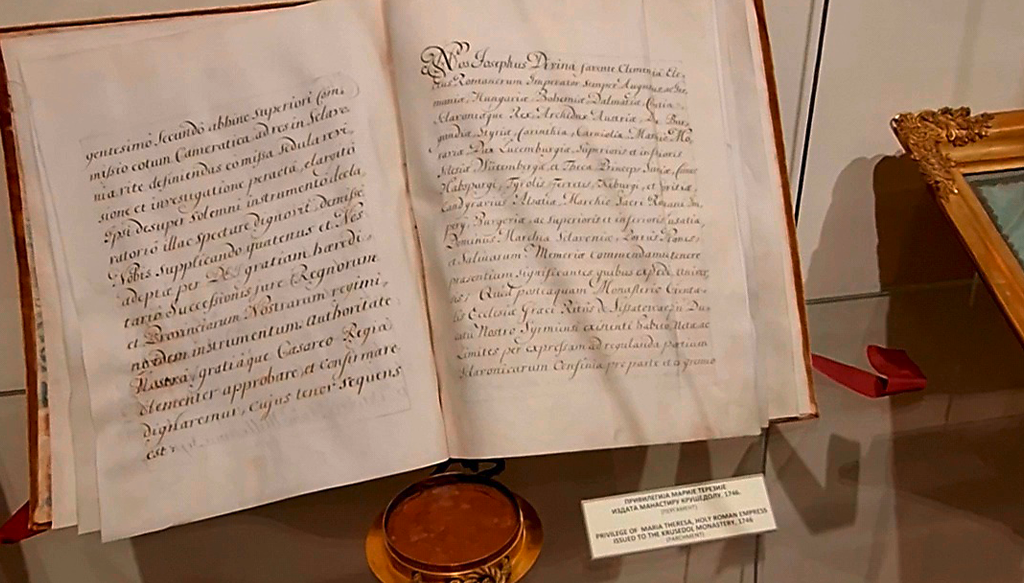 gentesimo Secundo abhinc Superiori Com,
missio cotum Cameratica, ad res in Sclavo,
nia rite definiendas comissa, sedula revi,
sione et investigatione peracta, elargito
Ipsi desuper Solemni instrumento decla,
ratorio illac spectare dignosvit, demisse
Nobis Supplicando, quatenus et Nos
adeptae per DEI gratiam hæredi,
tario Successionis jure Regnorum
et Provinciarum Nostrarum regimi,
instrumentum Authoritate
Nostra, gratiaque Cæsareo Regia
clementer approbare, et Confirmare
dignaremur, Cujus tenor Sequens
est
Nos Josephus Divina favente Clementia Ele,
ctus Romanorum Imperator Semper Augustus, ac Ger,
maniæ, Hungariæ Bohemiæ Dalmatiæ, Croatiæ,
Sclavoniæque Rex, Archidux Austriæ, Dux Bur,
gundiæ, Styriæ, Carinthiæ, Carniolæ, Marchio Mo,
raviæ Dux Lucemburgiæ, Superioris et inferioris
Silesiæ Würtembergæ, et Princeps Sueviæ, Comes
Habspurgi, Tyrolis Ferretis, Kiburgi, et Goritiæ,
Landgravius Alsatiæ, Marchio Sacri Romani Im,
perij, Burgoviæ, ac Superioris et inferioris Lusatiæ,
Dominus Marchiæ Sclavoniæ, Portus Naonis,
et Salinarum. Memoriæ Commendamus tenore
præsentium Significantes, quibus expedit Univer,
sis, Quod posteaquam Monasterio Orienta,
lis Ecclesiæ Græci Ritus de in Du,
catu Nostro Syrmiensi existenti
Limites per expressam ad regulanda partium
Slavonicarum Confinia pro parte et è gremio
ПРИВИЛЕГИЈА МАРИЈЕ ТЕРЕЗИЈЕ
ИЗДАТА МАНАСТИРУ КРУШЕДОЛУ, 1746.
(ПЕРГАМЕНТ)
PRIVILEGE OF MARIA THERESA, HOLY ROMAN EMPRESS
ISSUED TO THE KRUSEDOL MONASTERY, 1746
(PARCHMENT)